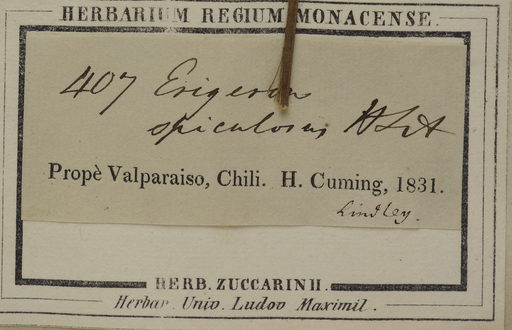 HERBARIUM REGIUM MONACENSE.
407 Erigeron
spiculosus H&A
Propè Valparaiso, Chili. H. Cuming, 1831.
Lindley.
HERB. ZUCCARINII.
Herbar. Univ. Ludov Maximil.